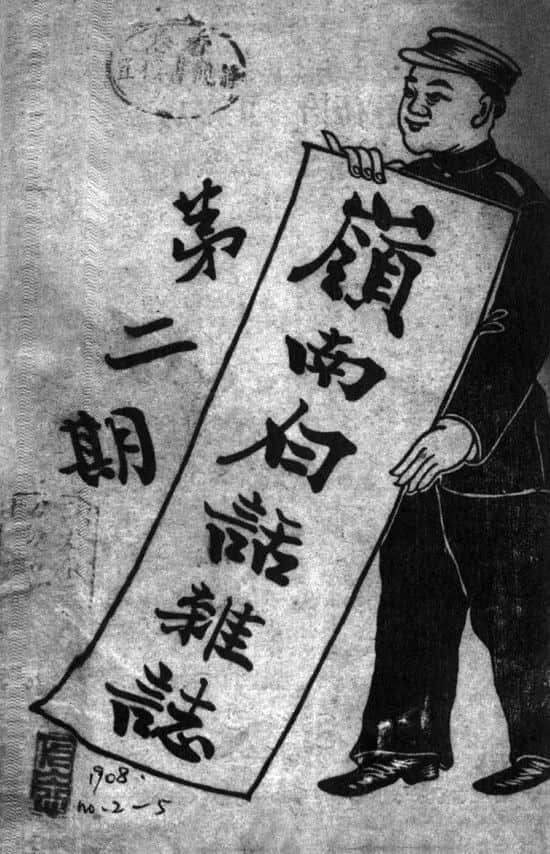 嶺南白話雜誌
第二期
1908.
no.2-5